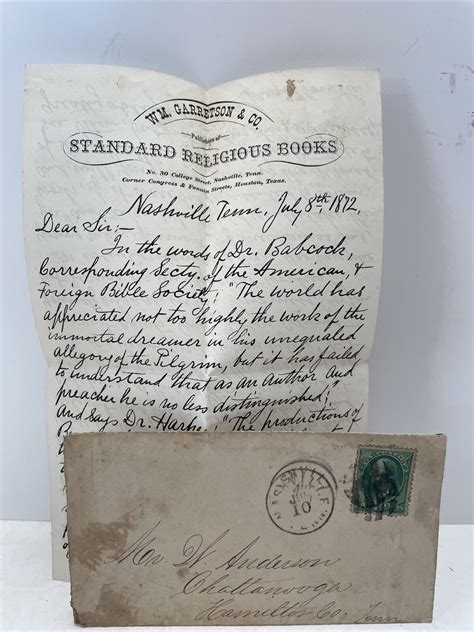 WM. GARRETSON & CO.
Publishers of
STANDARD RELIGIOUS BOOKS
No. 30 College Street, Nashville, Tenn.
Corner Congress & Fannin Streets, Houston, Texas.
Nashville Tenn, July 8th, 1872,
Dear Sir:-
In the words of Dr. Babcock,
Corresponding Secty. of the American, &
Foreign Bible Society, "The world has
appreciated not too highly the work of the
immortal dreamer in his unequaled
allegory of the Pilgrim, but it has failed
to understand that as an author and
preacher he is no less distinguished",
And Says Dr.
"The productions of
NASHVILLE
10
TENN.
Mr W. Anderson
Chattanooga
Hamilton Co. Tenn